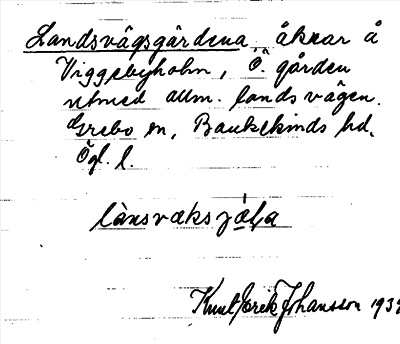 Landsvägsgärdena, åkrar å
Viggebyholm, Ö. gården
utmed allm. landsvägen.
Grebo sn, Bankekinds hd,
Ögl. l.
Knut Erik Johansson